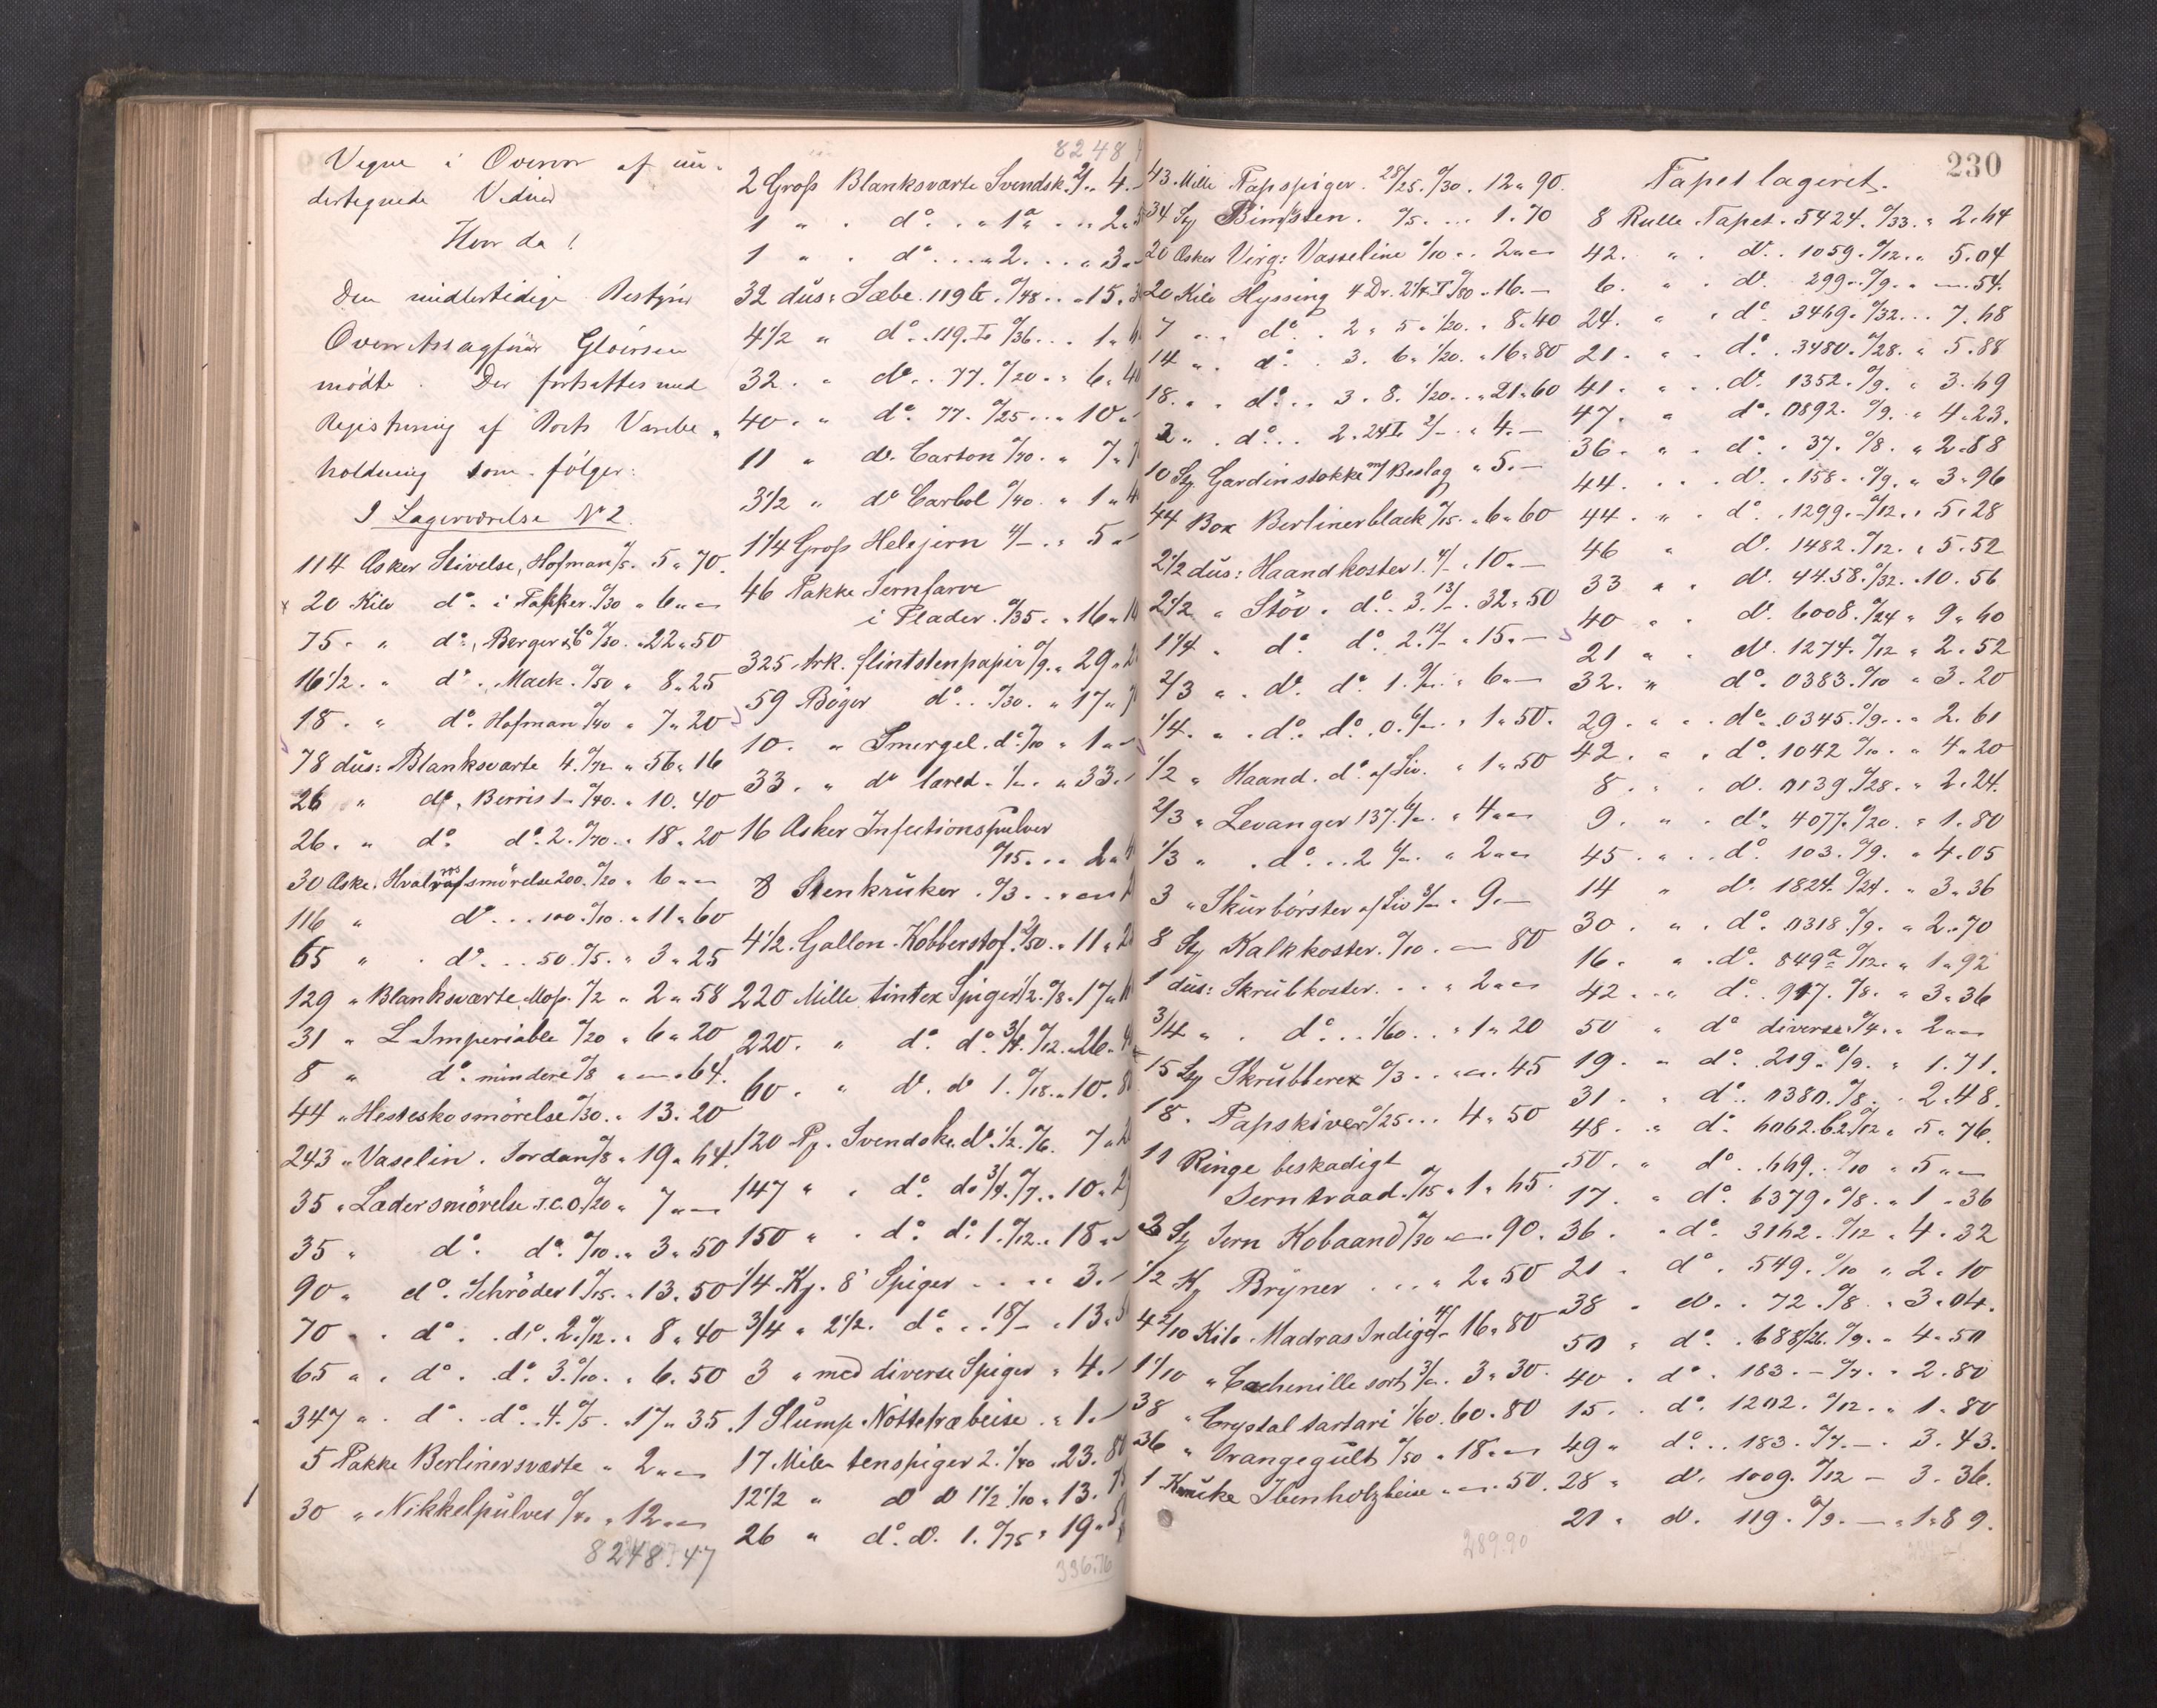 Vegne i Overvær af un-
dertegnede Vidner
Hvor da!
Den midlertidige Bestyrer
Overretssagfører Gloersen
mödte. Der fortsattes med
Registrering af Boets Varebe-
holdning som følger:
I Lagerværelse No 2.
114 Æsker Stivelse, Hofman 0/5. 5 " 70.
20 Kilo do i Papper. 0/30 " 6 " —
75 " do, Berger & Co 0/30. " 22 " 50
16 1/2 " do. Mack. 0/50 " 8 " 25
18. " do. Hofman 0/40 " 7 " 20
78 dus: Blanksværte 4. 0/72 " 56 " 16
26 " do, Berris 1 - 0/40. " 10. 40
26. " do do. 2. 0/70. " 18 " 20
30 Æske. Hvalrossmörelse 200. 0/20 " 6 " —
116 " do... 100. 0/10. " 11 " 60
65 " do... 50. 0/5. " 3 " 25
129 " Blanksværte, Mop. 0/2 " 2 " 58
31 " L Imperiable 0/20 " 6 " 20
8 " do. mindere 0/8 " — " 64.
44 " Hesteskosmörelse 0/30. " 13. 20
243 " Vaselin. Jordan 0/8 " 19 " 44.
35 " Lædersmörelse J.C.O. 0/20 " 7 " —
35 " do. do. 0/10. " 3 " 50
90 " do. Schröder 1 0/15. " 13. 50
70 " do. do. 2. 0/12. " 8 " 40
65 " do. do. 3. 0/10. " 6. 50
347 " do. do. 4. 0/5. " 17 " 35.
5 Pakke Berlinersværte " 2 " —
30 " Nikkelpulver 0/40 " 12 " —
8248.47
8248
2 Gross Blanksvarte Svendsk. 2/- " 4. -
1 " do. " 1a " 2 "
1 " do... " 2... " 3 "
32 dus: Sæbe. 119 0/48.. " 15.
4 1/2 " do. 119. 0/36... 1 "
32. " do.. 77. 0/20. " 6 " 40
40. " do. 77. 0/25... " 10 "
11 " do. Carton 0/70. " 7 "
3 1/2 " do Carbol 0/40. " 1 " 4
1 1/4 Gross Helsjern 4/- . " 5 "
46 Pakke Jernfarve
i Plader. 0/35. " 16 " 1
325 Ark. flintstenpapir 0/9. " 29 " 2
59 Böger do.. 0/30. " 17 " 7
10. " Smergel. do. 0/10 " 1 "
33. " do lared. 1/- . " 33.
16 Æsker Infectionspulver
0/15... 2 " 4
8 Stenkruker. 0/3... " — 2
4 1/2. Gallon. Kobberstof. 2/50. " 11 " 2
220 Mille tintex Spiger 1/2. 0/8. " 17 "
220. " do. do. 3/4. 0/12. " 26.
60. " do. do 1. 0/18. " 10. 8
120 Pp. Svendske do. 1/2. 0/6. 7 " 2
147 " do. do 3/4. 0/7. " 10 " 2
150 " do. do. 1. 0/12. " 18 "
1/4. Kj. 8' Spiger.... 3.
3/4 " 2 1/2. do... 18/- " 13.
3 " med diverse Spiger " 4.
1 Slump Nöttetræbeise. " 1.
17 Mille tenspiger 2. 1/40 " 23. 80
12 1/2 " do do 1 1/2 1/10 " 13. 75
26 " do. do. 1. 0/75 " 19 " 5
336.76
43. Mille Papspiger. 28/25. 0/30. 12 " 90.
34 Sty Bimssten. 0/5.... 1. 70
20 Æsker Virg: Vasseline 0/10.. 2 " —
20 Kilo Hyssing 4 Dr. 0/80 " 16. —
7 " do. 2 " 5 " 1/20. " 8 " 40
14 " do. 3. 6 " 1/20. " 16 " 80
18. " do.. 3. 8. 1/20.. " 21 " 60
2 " do.. 2. 24 2/- . " 4. —
10 Sty. Gardinstokke m/ Beslag " 5. —
44 Box Berlinerblack 0/15. " 6 " 60
2 1/2 dus: Haandkoster 1. 4/- . 10. —
2 1/2 " Stöv. do. 3. 13/- . 32 " 50
1 1/4 " do. do. 2. 12/- " 15. —
2/3 " do. do. 1. 9/- . " 6 " —
1/4. " do. do. 0. 6/- . " 1 " 50.
1/2 " Haand. do. af Siv. " 1 " 50
2/3 " Levanger 137. 6/- . " 4 " —
1/3 " do... 2 6/- . " 2 " —
3 " Skurbörster af Siv 3/- " 9. —
8 Sty Kalkkoster. 0/10. — 80
1 dus: Skrubkoster... " 2 " —
3/4 " do... 1/60.. " 1 " 20
15 Sty Skrubberex 0/3... " —. 45
18. Papskiver 0/25... 4 " 50
11 Ringe beskadigt
Jerntraad. 0/15 " 1 " 65.
3 Sty Jern Kobaand 0/30 " — . 90.
1/2 Kj Bryner... " 2 " 50
4 2/10 Kilo Madras Indigo 4/- 16 " 80
1 1/10 " Cochenille sort 3/- . 3 " 30.
38 " Crystal tartari 1/60. 60 " 80
36 " Orangegult 0/50 " 18 " —
1 Krukke Ibenholzbeise " — . 50.
289.90
230
Tapetlageret.
8 Rulle Tapet. 5424. 0/33. " 2. 64
42. " do.. 1059. 0/12. " 5. 04
6. " do. 299. 0/9. " — . 54.
24. " do 3469. 0/32... 7. 68
21. " do. 3480. 0/28. " 5. 88
41. " do. 1352. 0/9. " 3. 69
47. " do. 0892. 0/9. " 4 " 23.
36. " do. 37. 0/8. " 2 " 88
44. " do. 158. 0/9. " 3 " 96
44. " do. 1299. 0/12. " 5 " 28
46 " do. 1482. 0/12. " 5. 52
33 " do. 44.58. 0/32. " 10. 56
40 " do. 6008. 0/24 " 9 " 60
21 " do. 1274. 0/12 " 2. 52
32. " do. 0383. 0/10 " 3. 20
29. " do. 0345. 0/9. " 2. 61
42. " do. 1042 0/10. " 4 " 20
8. " do. 0139. 0/28. " 2. 24.
9. " do. 4077. 0/20. " 1. 80
45. " do. 103. 0/9. " 4. 05
14 " do. 1824. 0/24. " 3 " 36
30. " do. 0318. 0/9. " 2. 70
16. " do. 849a 0/12. " 1 " 92
42. " do. 917. 0/8. " 3 " 36
50 " do diverse. 0/4. " 2 " —
19. " do. 219. 0/9. " 1. 71.
31. " do. 0380. 0/8. . 2. 48.
48. " do. 6062.62. 0/12 " 5 " 76.
50. " do. 669. 0/10 " 5 " —
17. " do. 6379. 0/8. " 1 " 36
36. " do. 3162. 0/12 " 4. 32
21 . do. 549. 0/10 " 2. 10
38 " do.. 72. 0/8. " 3 " 04.
50 " do. 688/26. 0/9. " 4 " 50
40. do. 183. — 0/7. " 2. 80
15. do. 1202. 0/12. " 1. 80
49 " do.. 183. 0/7. — . 3. 43.
28 " do. 1009. 0/12 — 3. 36.
21 " do. 119. 0/9. — " 1 " 89.